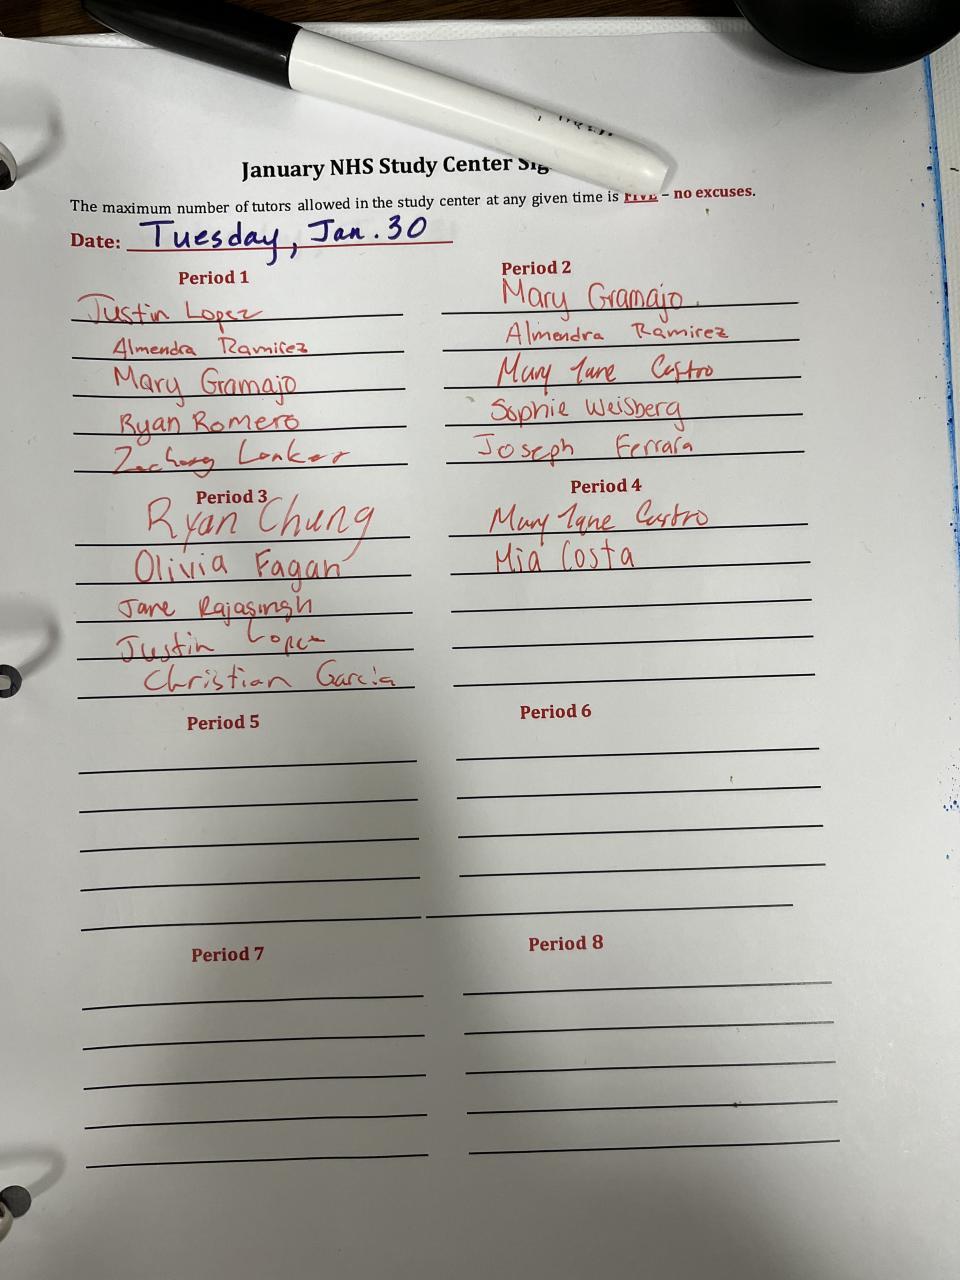 January NHS Study Center Sig
The maximum number of tutors allowed in the study center at any given time is FIVE – no excuses.
Date: Tuesday, Jan. 30
Period 1
Justin Lopez
Almendra Ramirez
Mary Gramajo
Ryan Romero
Zachary Lonker
Period 2
Mary Gramajo
Almendra Ramirez
Mary Jane Castro
Sophie Weisberg
Joseph Ferrara
Period 3
Ryan Chung
Olivia Fagan
Jane Rajasingh
Justin Lopez
Christian Garcia
Period 4
Mary Jane Castro
Mia Costa
Period 5
Period 6
Period 7
Period 8